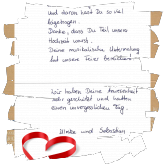 und daran hast Du so viel
beigetragen.
Danke, dass Du Teil unserer
Hochzeit warst.
Deine musikalische Untermalung
hat unsere Feier bereichert.
Wir haben Deine Anwesenheit
sehr geschätzt und hatten
einen unvergesslichen Tag.
Ulrike und Sebastian